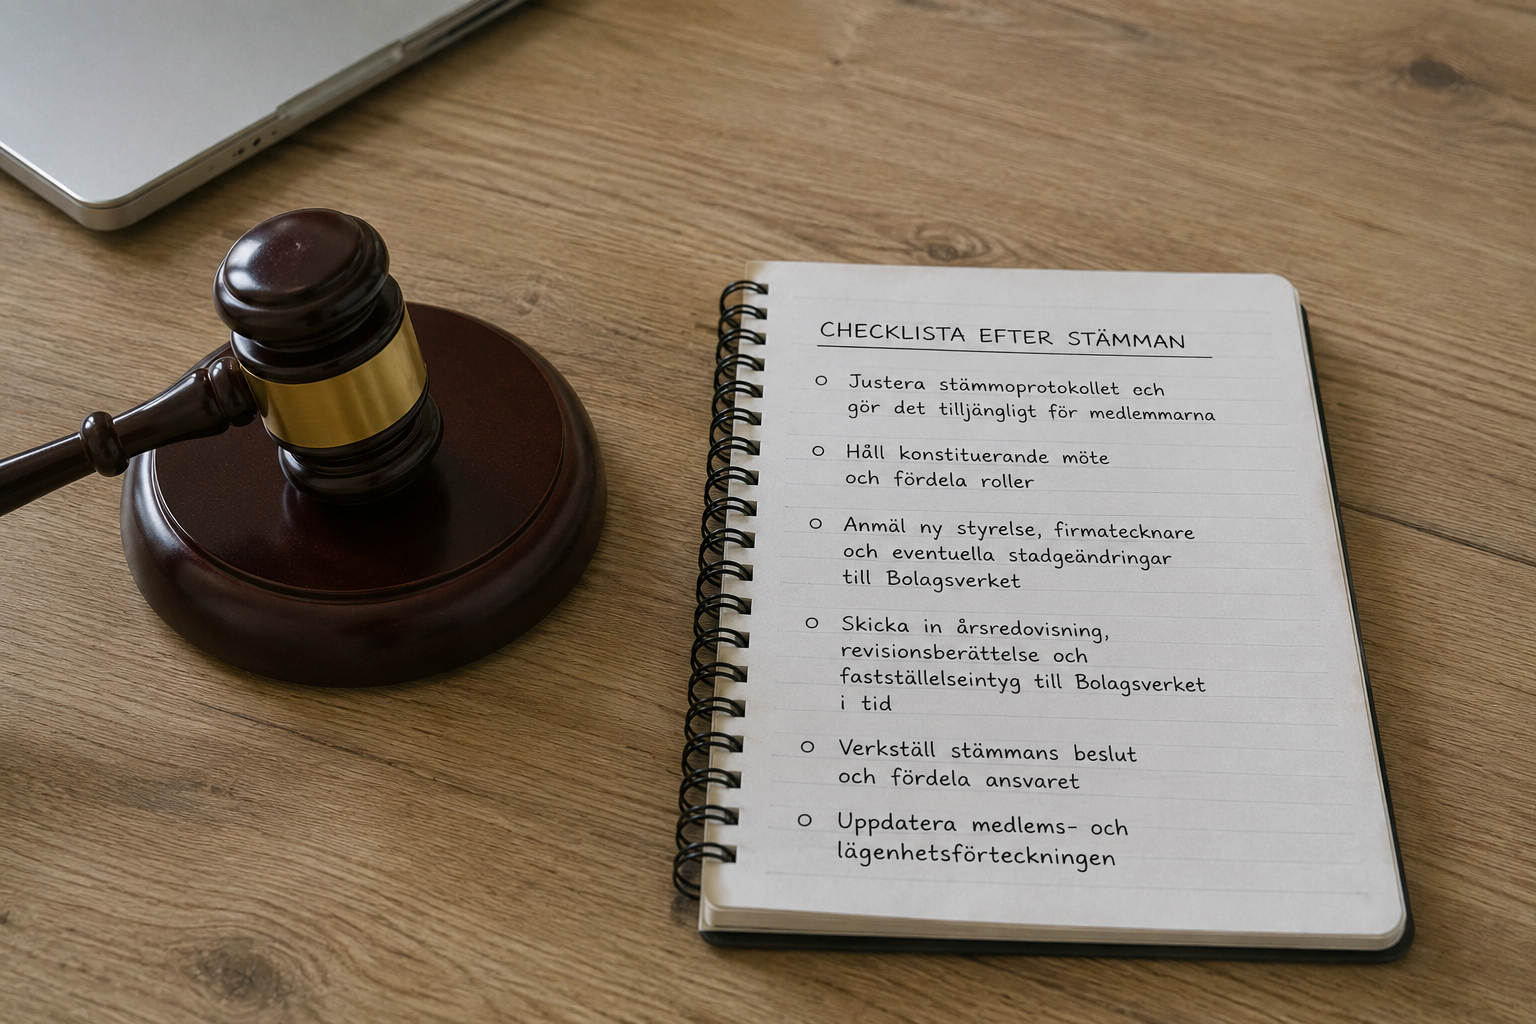 CHECKLISTA EFTER STÄMMAN
Justera stämmoprotokollet och
gör det tilljängligt för medlemmarna
Håll konstituerande möte
och fördela roller
Anmäl ny styrelse, firmatecknare
och eventuella stadgeändringar
till Bolagsverket
Skicka in årsredovisning,
revisionsberättelse och
fastställelseintyg till Bolagsverket
i tid
Verkställ stämmans beslut
och fördela ansvaret
Uppdatera medlems- och
lägenhetsförteckningen